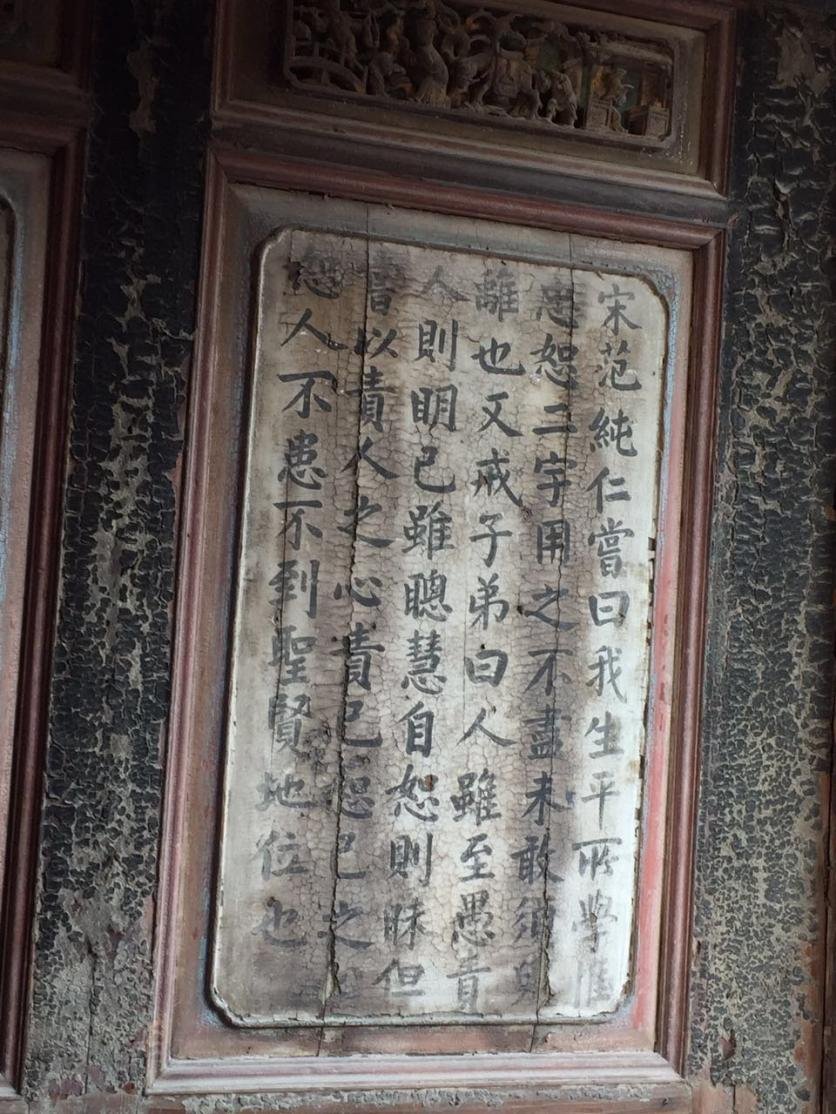 宋范純仁嘗曰我生平所學惟
忠恕二字用之不盡未敢須臾
離也又戒子弟曰人雖至愚責
人則明己雖聰慧自恕則昧但
以責人之心責己恕己之心
恕人不患不到聖賢地位也